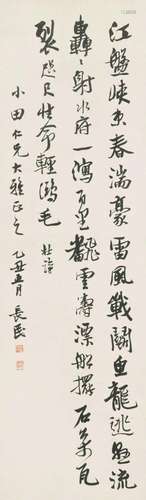 江盤峽束春湍豪雷風戰鬭魚龍逃懸流
轟〻射水府一瀉百里翻雲濤漂船擺石萬瓦
裂咫尺性命輕鴻毛 杜詩
小田仁兄大雅正之 乙丑五月 長民